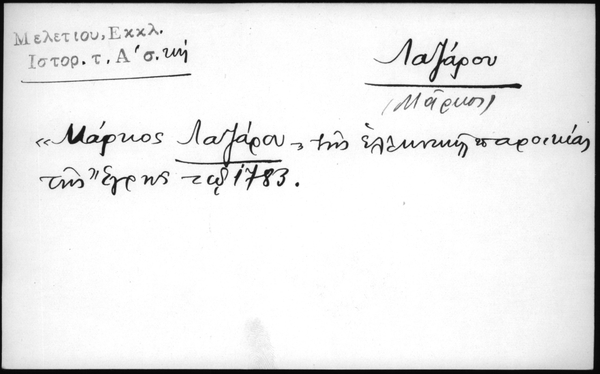 Μελετίου, Εκκλ.
Ιστορ. τ. Α' σ. κή
Λαζάρου
(Μάρκος)
«Μάρκος Λαζάρου», τῆς ἑλληνικῆς παροικίας
τῆς Ἔγρης τῷ 1783.